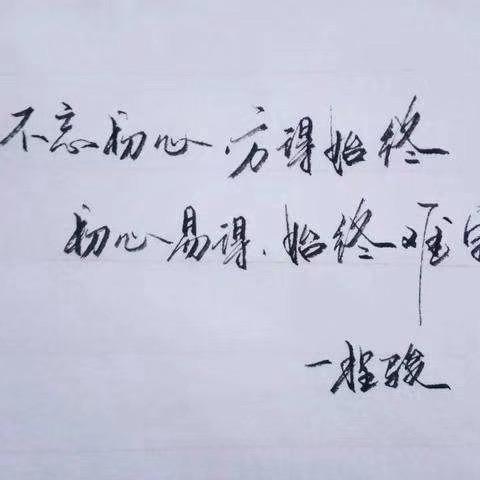 不忘初心 方得始终
初心易得、始终难守
一程骏